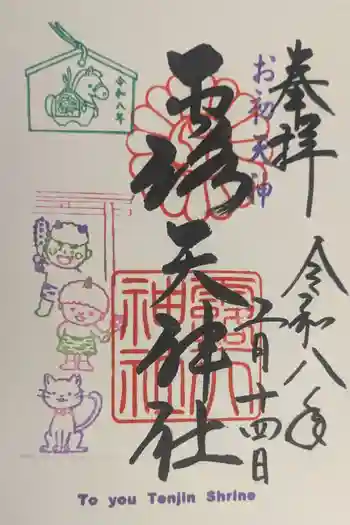 奉拝
お初天神
露天神社
令和八年
二月十四日
令和八年
露天
神社
To you Tenjin Shrine